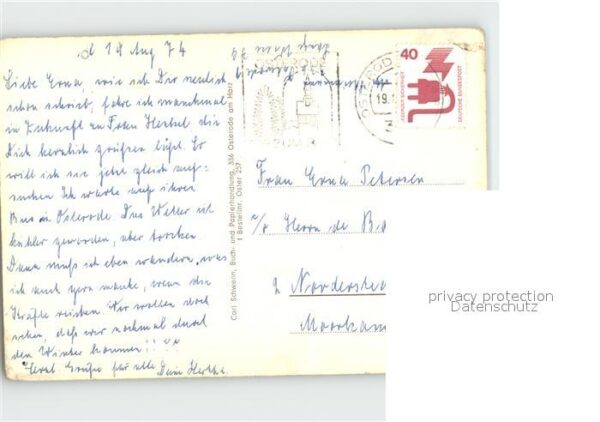 d 19 Aug 74
Liebe Erna, wie ich Dir neulich
schon schrieb, fahre ich manchmal
in Zukunft zu Frau Herbst die
Dich herzlich grüßen läßt. So
will ich sie jetzt gleich auf-
suchen Ich warte auf ihren
Bus in Osterode. Das Wetter ist
kühler geworden, aber trocken
Dann muß ich eben wandern, was
ich auch gern mache, wenn die
Kräfte reichen. Wir wollen doch
sehen, daß wir nochmal durch
den Winter kommen!!
Herzl. Grüße für alle Dein Hertha.
Carl Schwelin, Buch- und Papierhandlung, 336 Osterode am Harz
1 Bestellnr. Oster 257
OSTERODE
OSTEROD
19.
40
JEDERZEIT SICHERHEIT
DEUTSCHE BUNDESPOST
Frau Erna Petersen
b/ Herrn de B
2 Norderste
Moorkam
privacy protection
Datenschutz